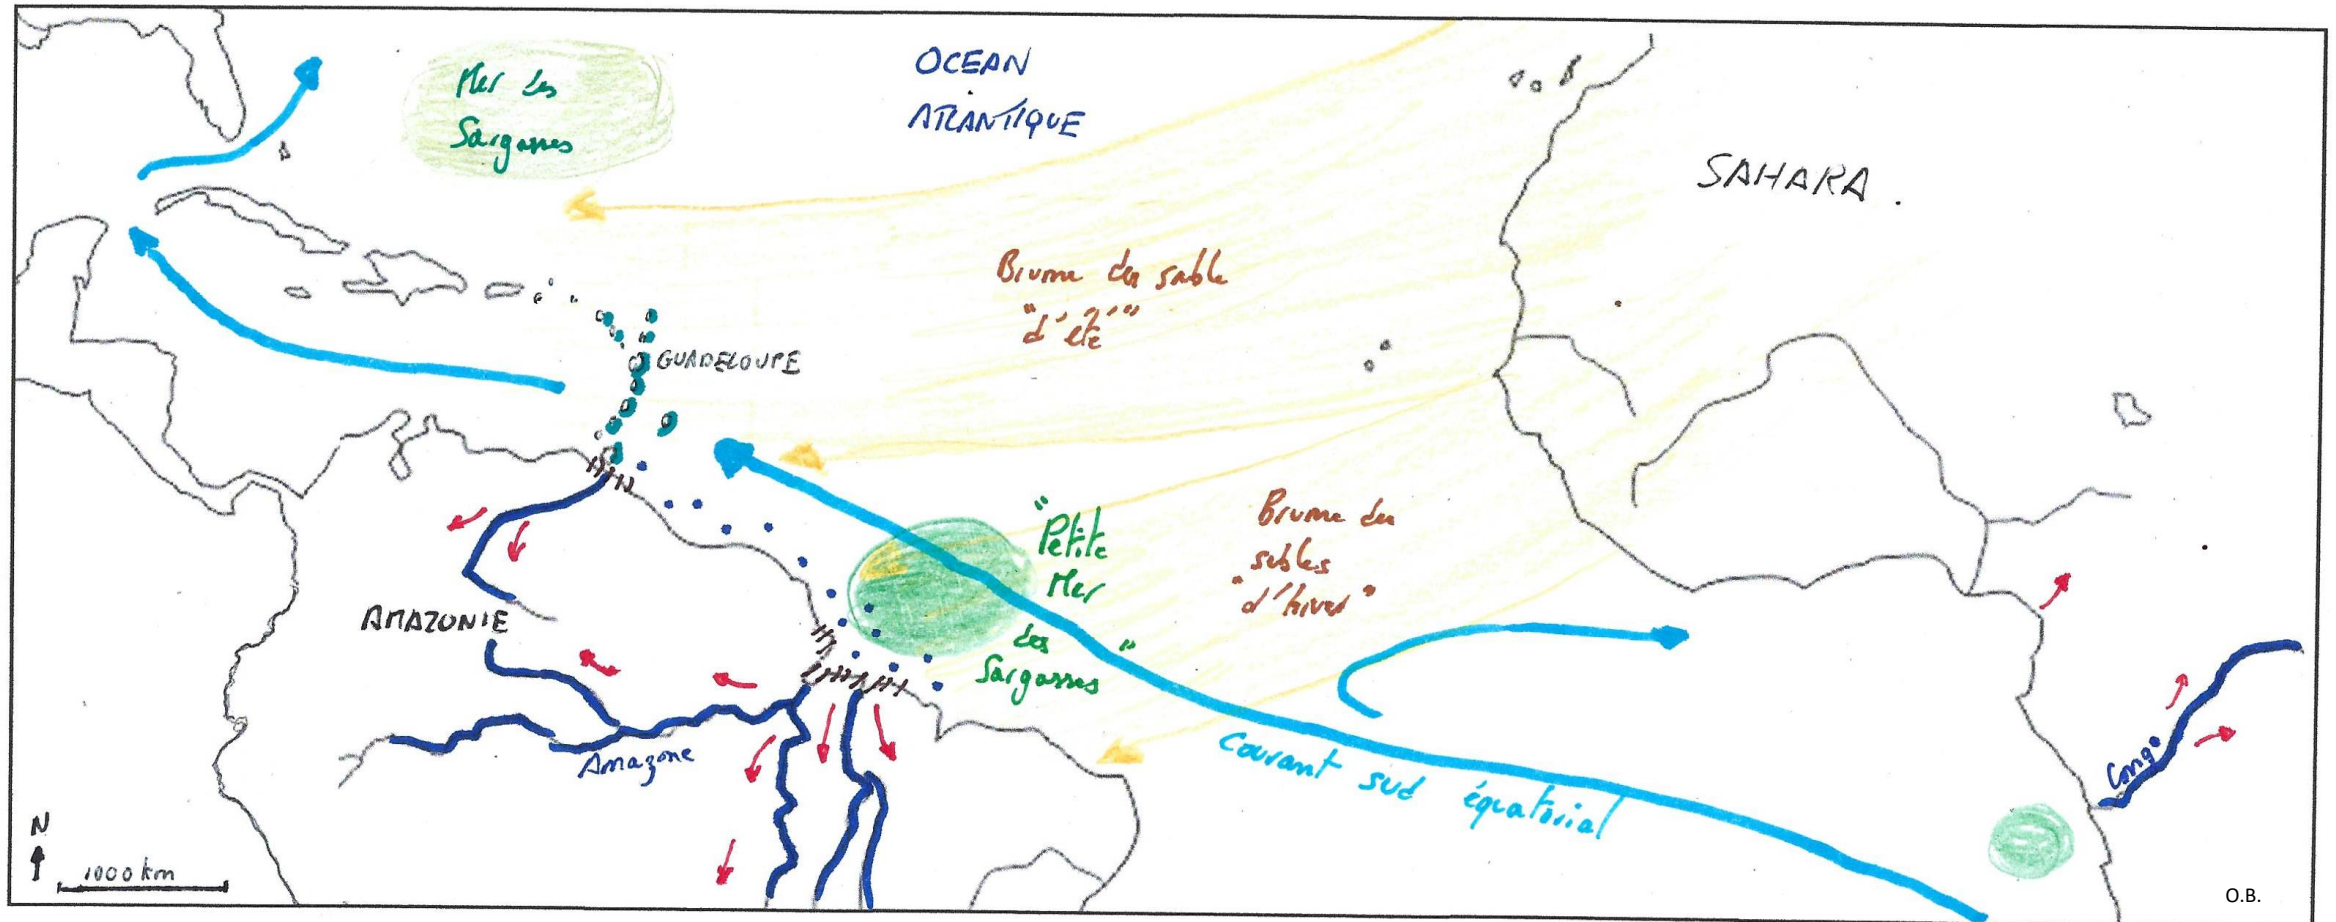 Mer des
Sargasses
OCEAN
ATLANTIQUE
SAHARA.
Brume de sable
"d'été"
GUADELOUPE
"Petite
Mer
des
Sargasses"
Brume de
sables
"d'hiver"
AMAZONIE
Amazone
Courant sud équatorial
Congo
N
1000 km
O.B.